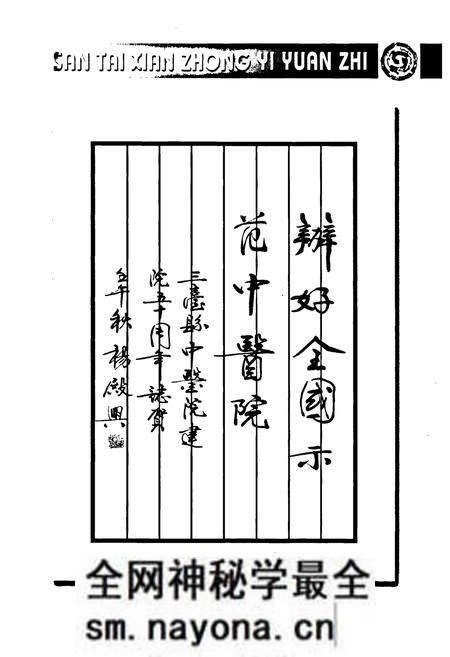 SAN TAI XIAN ZHONG YI YUAN ZHI
辦好全國示
范中醫院
三臺縣中醫院建
院五十周年誌賀
壬午秋楊殿興
全网神秘学最全
sm.nayona.cn